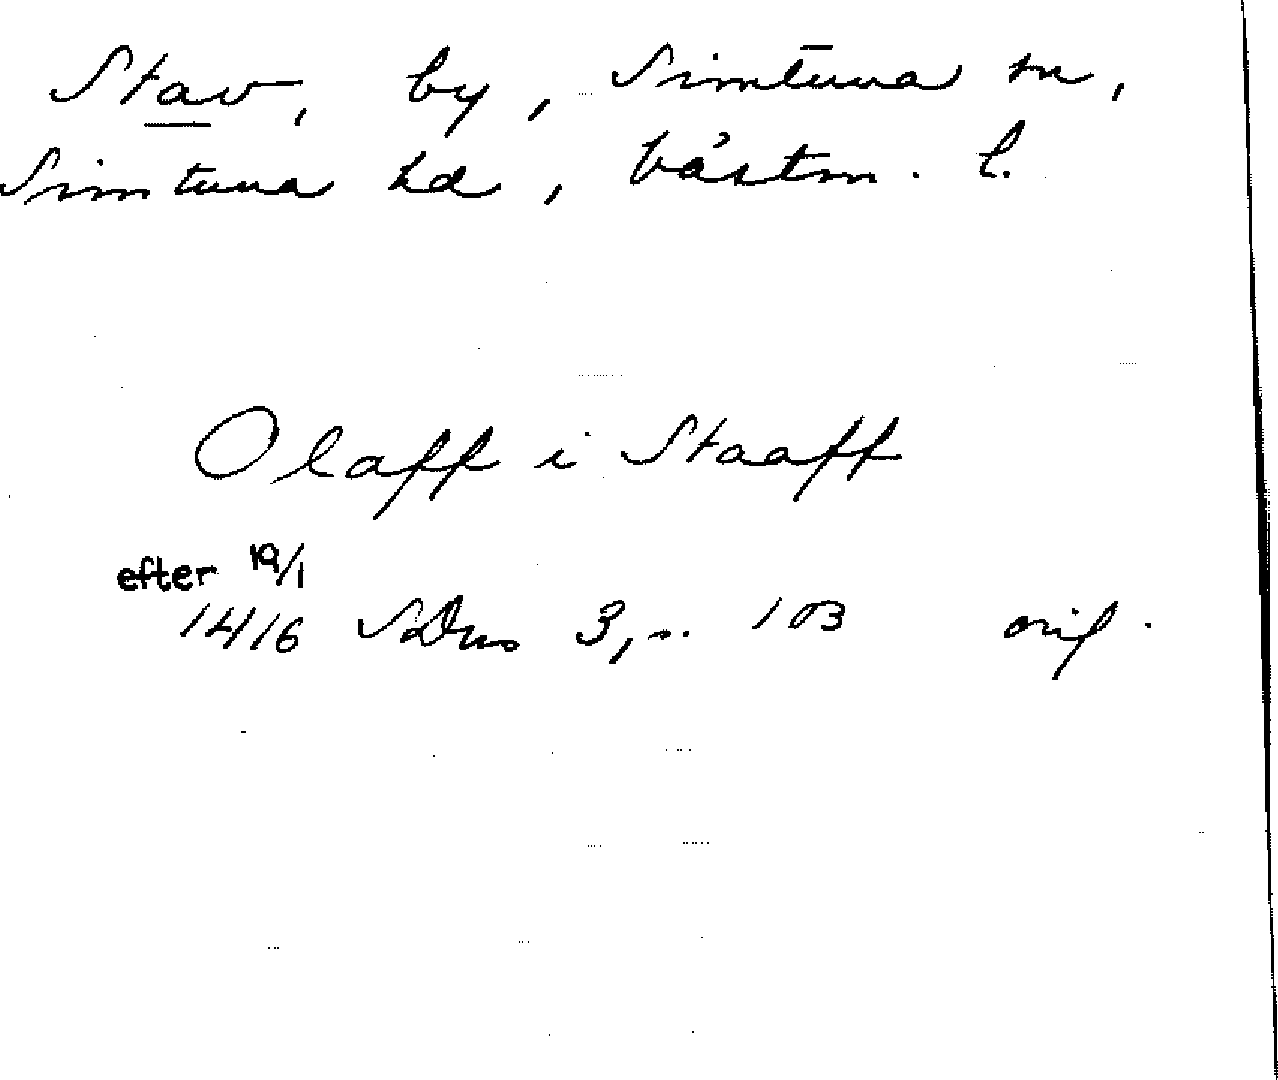 Stav, by, Simtuna sn,
Simtuna hd, Västm. l.
Olaff i Staaff
efter 19/1
1416 SDns 3, s. 103 orig.